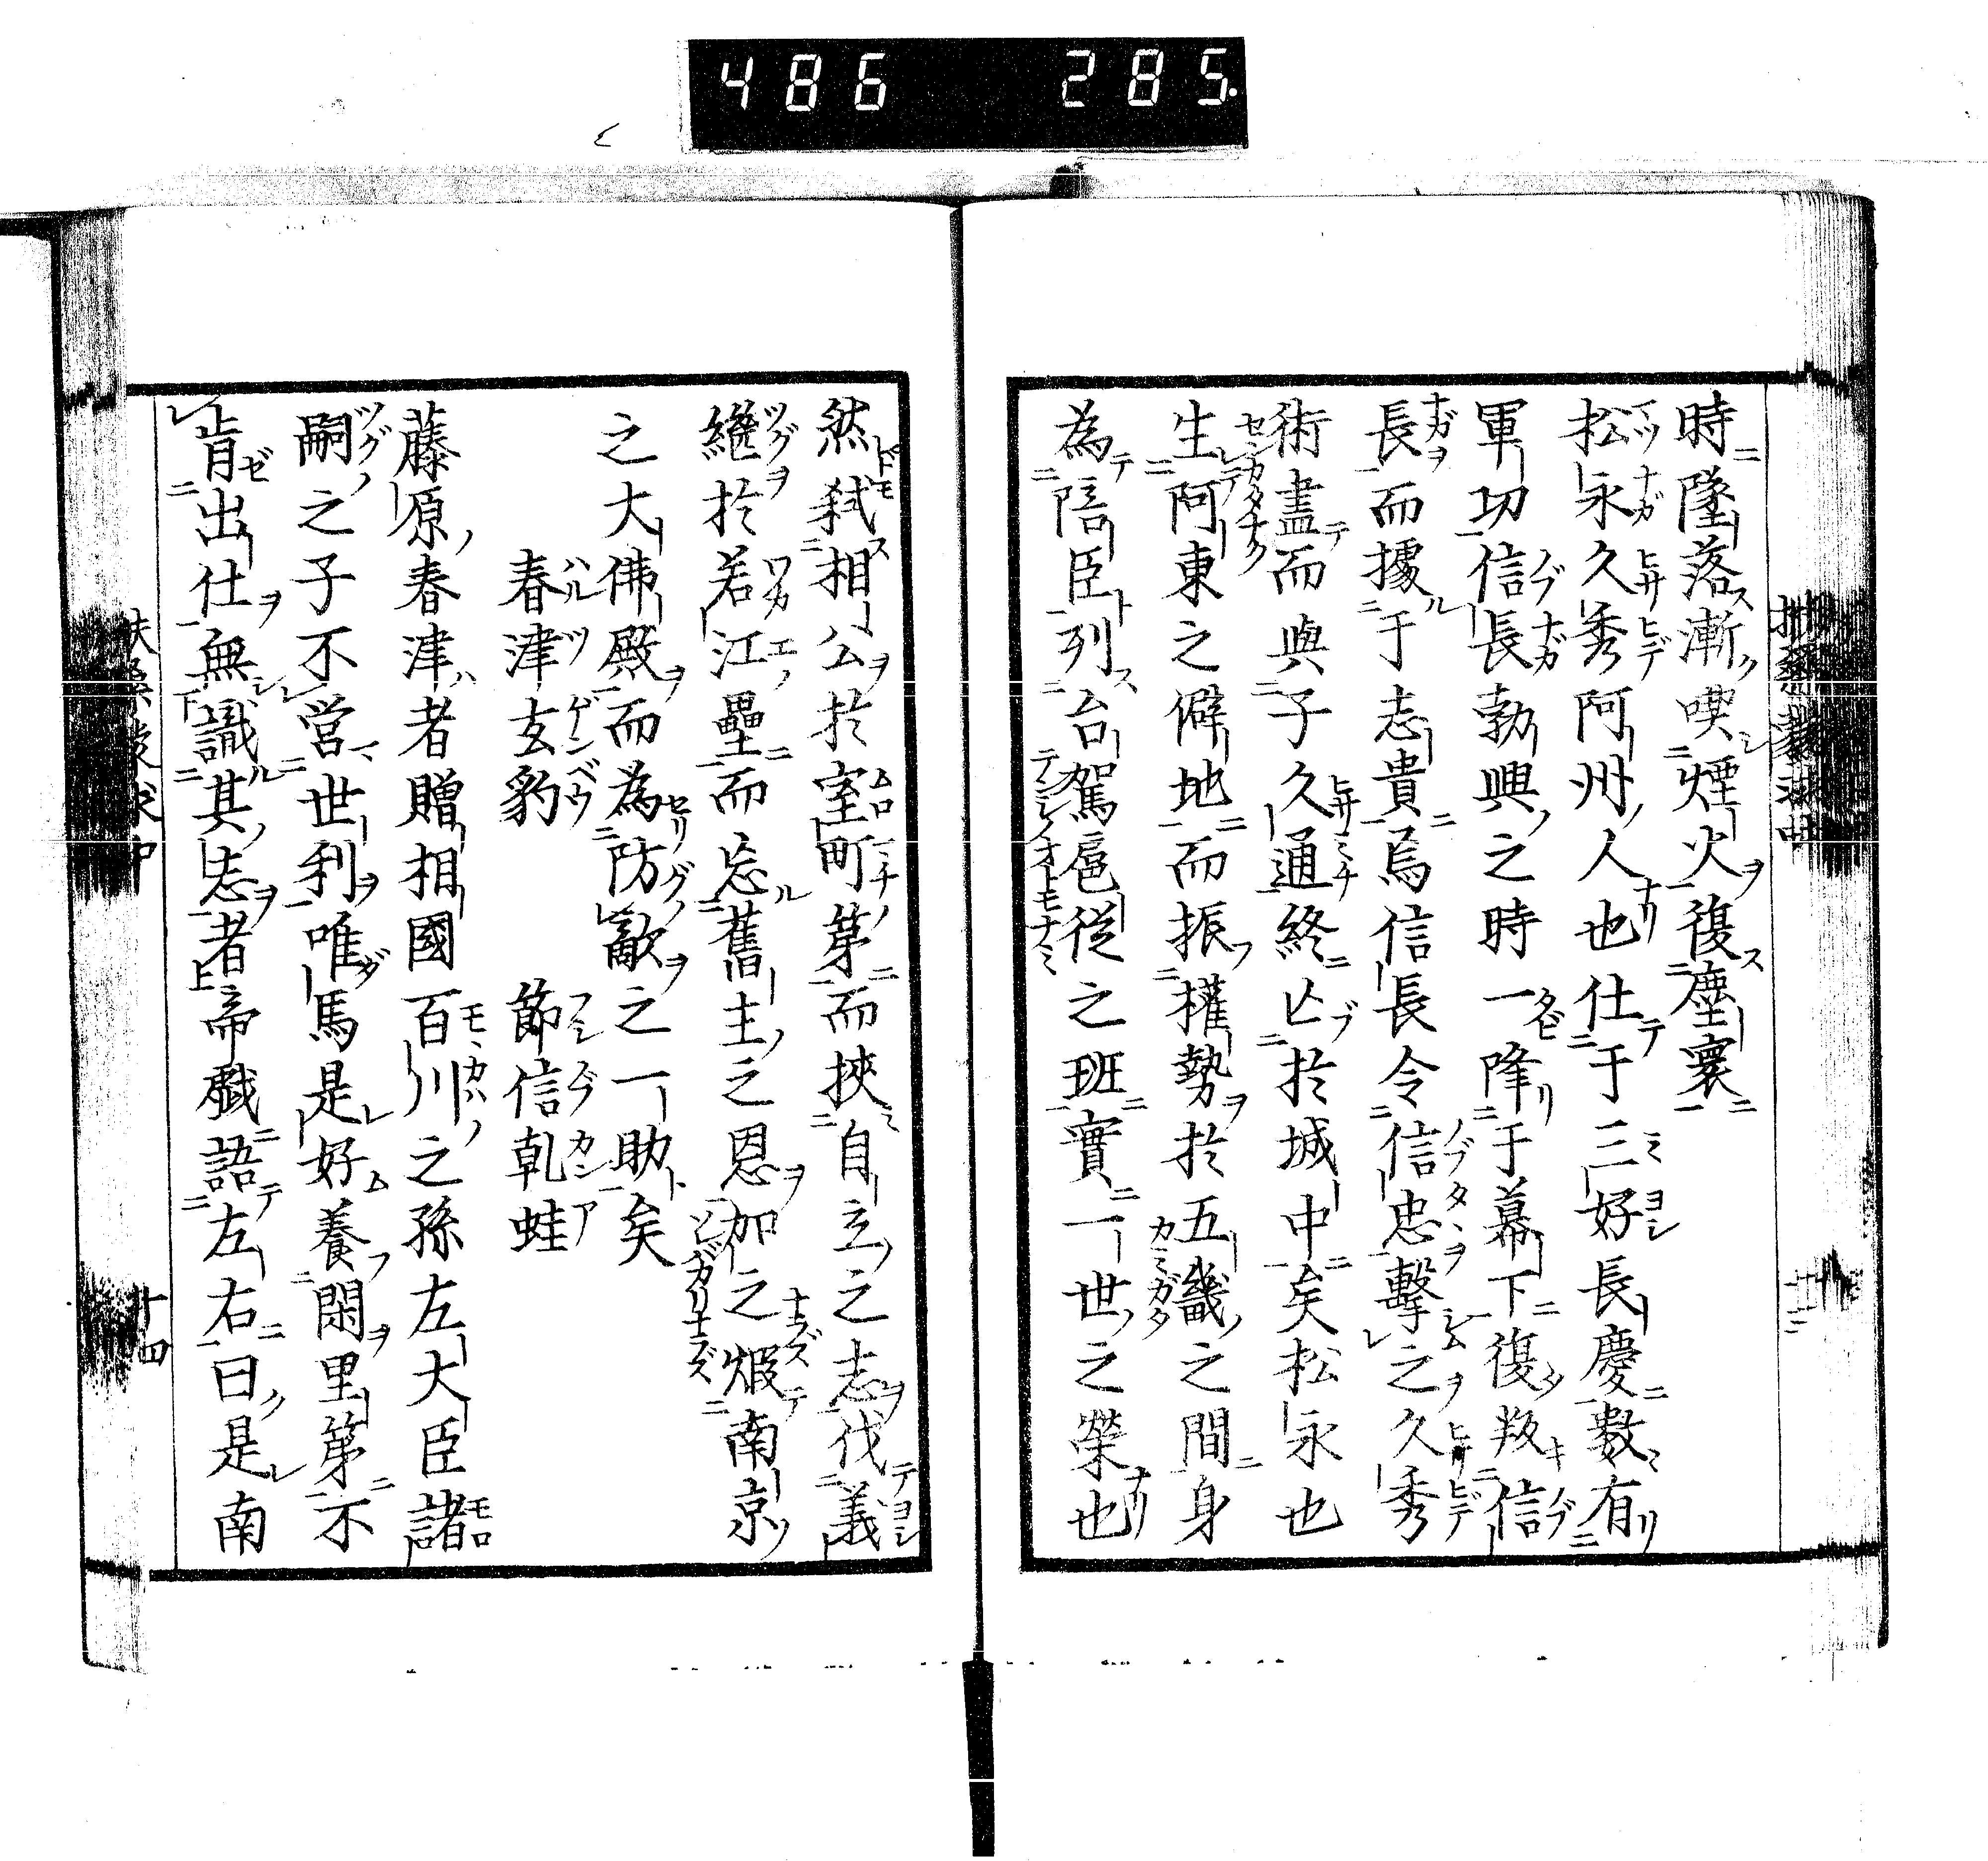 486 285.
時墜落漸喫煙火復塵寰
松永久秀阿州人也仕于三好長慶數有
軍功信長勃興之時一降于幕下復叛信
長而據于志貴焉信長令信忠擊之久秀
術盡而與子久通終亡於城中矣松永也
生阿東之僻地而振權勢於五畿之間身
為陪臣列台駕扈從之班實一世之榮也
然弒相公於室町第而挾自立之志伐義
繼於若江壘而忘舊主之恩加之燬南京
之大佛殿而為防敵之一助矣
春津玄豹 節信乾蛙
藤原春津者贈相國百川之孫左大臣諸
嗣之子不営世利唯馬是好養閑里第不
肯出仕無識其志者帝戲語左右曰是南
十四